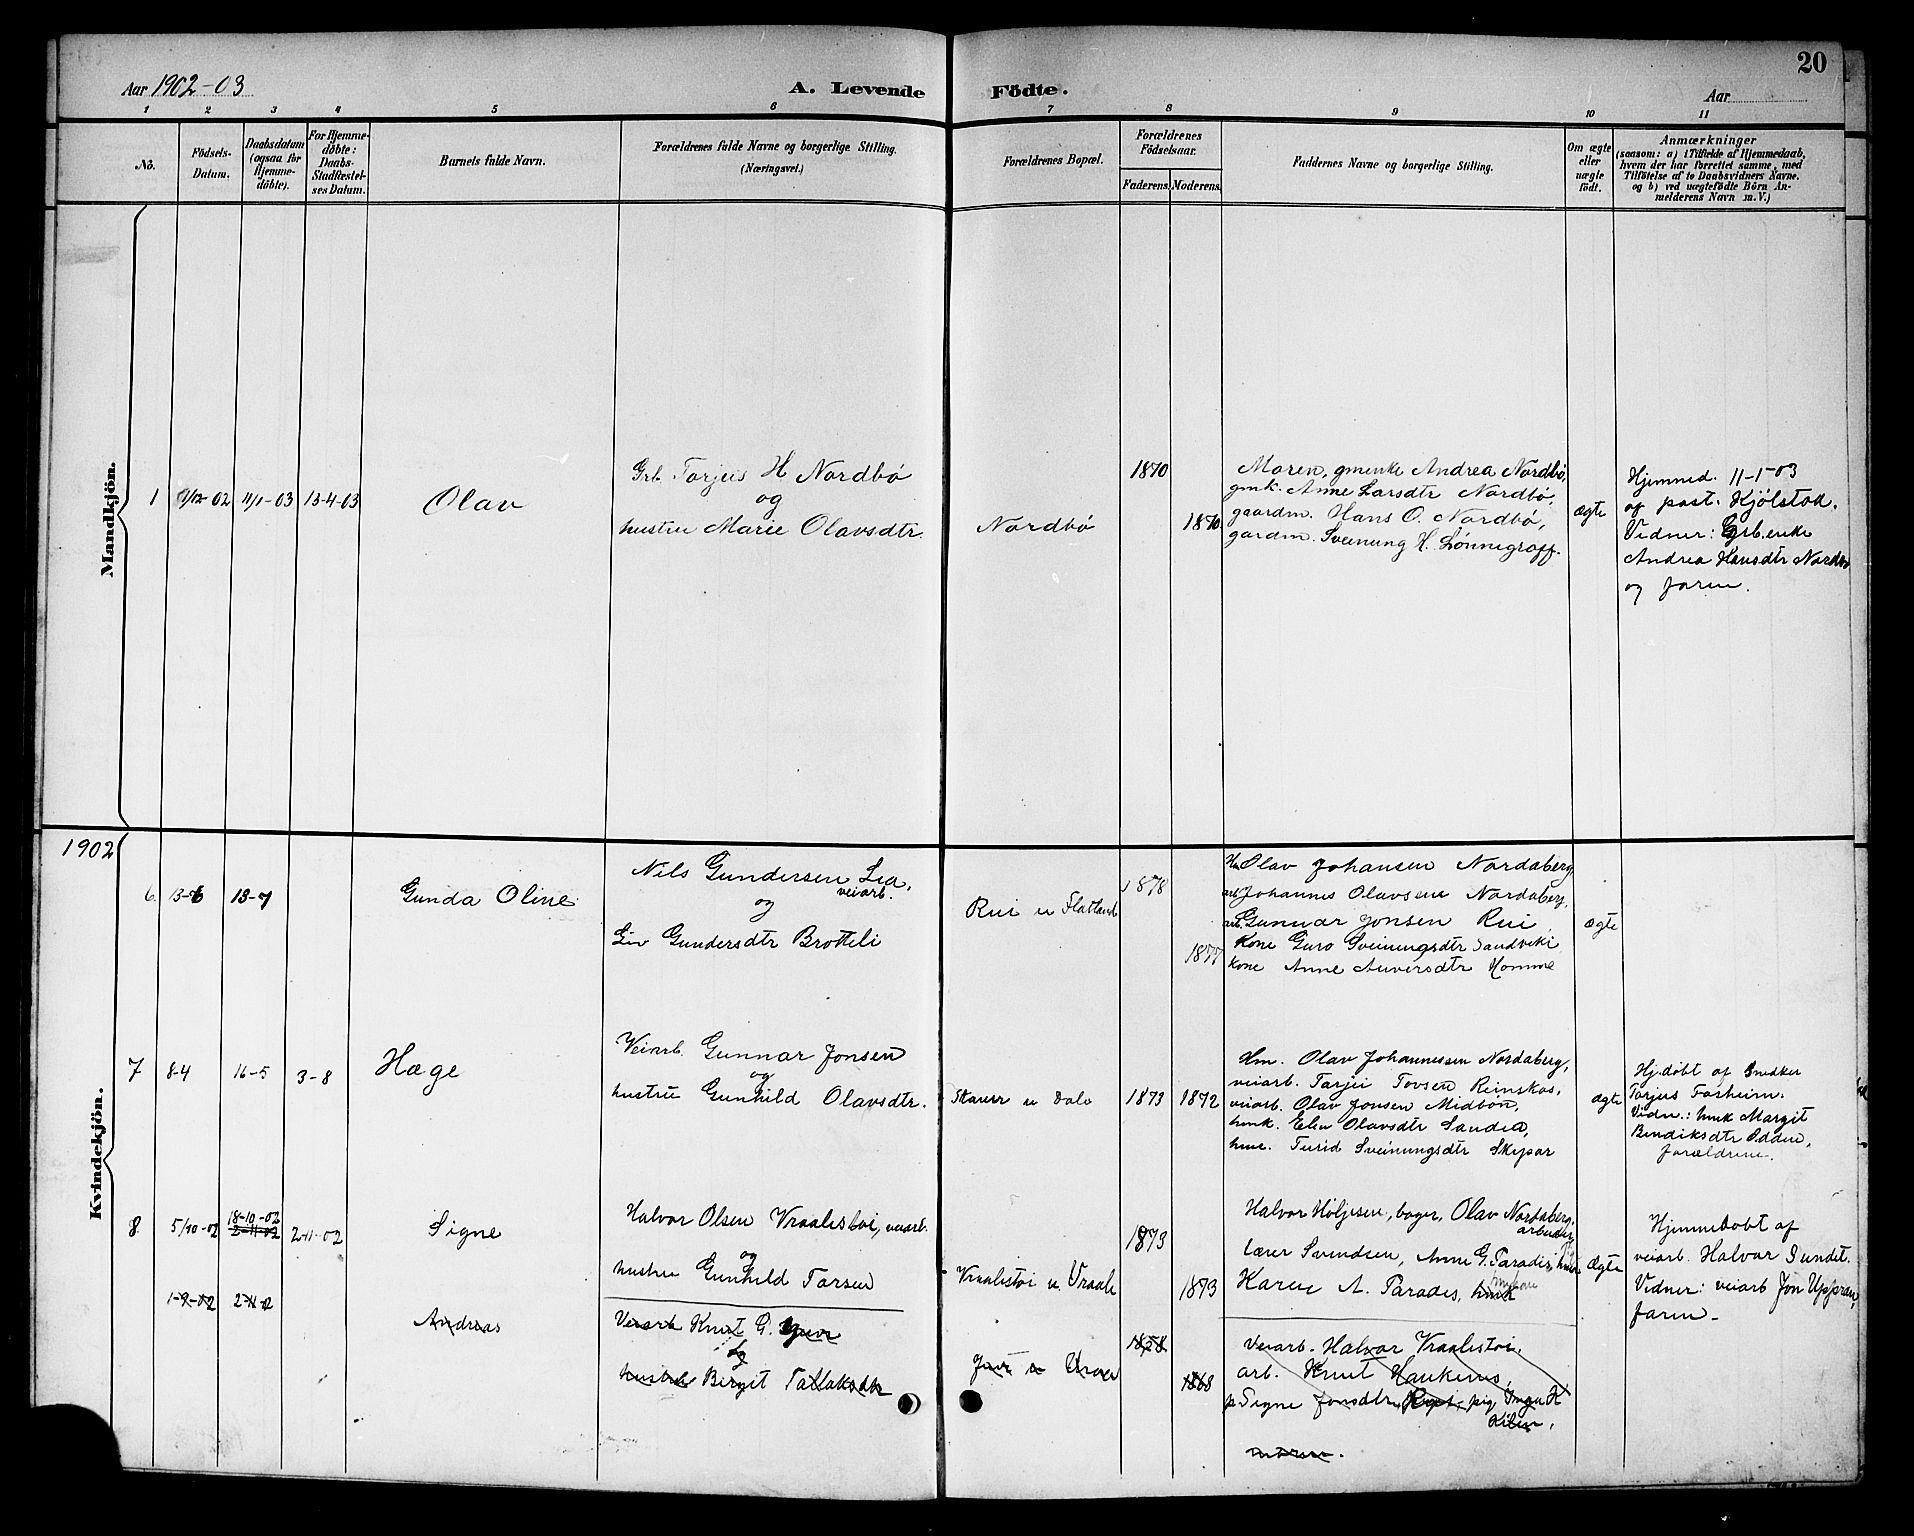 20
Aar 1902-03
A. Levende Födte.
Aar
1 2 3 4 5 6 7 8 9 10 11
No.
Födsels-Datum.
Daabsdatum (ogsaa for Hjemmedöbte).
For Hjemmedöbte: Daabs-Stadfæstelses Datum.
Barnets fulde Navn.
Forældrenes fulde Navne og borgerlige Stilling.
(Næringsvei.)
Forældrenes Bopæl.
Forældrenes Födselsaar.
Faderens. Moderens.
Faddernes Navne og borgerlige Stilling.
Om ægte eller uægte födt.
Anmærkninger
(saasom: a) i Tilfælde af Hjemmedaab, hvem der har forrettet samme, med Tilföielse af to Daabsvidners Navne, og b) ved uægtefödte Börn Anmelderens Navn m.V.)
Mandkjön.
1
/12-02
11/1-03
13-4-03
Olav
Grb. Torjus H Nordbø
og
hustru Marie Olavsdtr.
Nordbø
1870
1870
Maren, gmenke Andrea Nordbø,
gmk. Anne Larsdtr Nordbø,
gaardm. Hans O. Nordbø,
gardm. Sveinung H. Lønnegraff.
ægte
Hjemmed. 11-1-03
af past. Kjølstad.
Vidner: Grb.enke
Andrea Hansdtr Nordbø
og faren.
1902
Kvindekjön.
6.
13-6
13-7
Gunda Oline
Nils Gundersen Lia,
veiarb.
og
Liv Gundersdtr Brotteli
Rui u Flatland
1878
1877
Hm Olav Johansen Nordaberg,
arb Johannes Olavsen Nordaberg,
arb. Gunnar Jonsen Rui
Kone Guro Sveinungsdtr Sandviki
kone Anne Anversdtr Homme
ægte
7
8-4
16-5
3-8
Hæge
Veiarb. Gunnar Jonsen
og
hustru Gunhild Olavsdtr.
u Dale
1873
1872
Hm. Olav Johannessen Nordaberg,
veiarb. Tarjei Tovsen Reinskas,
veiarb. Olav Jonsen Midbøn,
hmk. Elen Olavsdtr Sandea,
hmr. Turid Sveinungsdtr Skypar
ægte
Hj.døbt af Snedker
Torjus Fosheim.
Vidn.: hmk Margit
Bendiksdtr Odden,
forældrene.
8
5/10-02
18-10-02
2-11-02
2-11-02
Signe
Halvor Olsen Vraalistøi, veiarb.
og
hustru Gunhild Tarsen
Vraalistøi u. Vraale
1873
1873
Halvor Høljesen, bager, Olav Nordaberg,
arbeider,
lærer Svendsen, Anne G. Paradis,
Karen A. Paradis, hmk
Ægte
Hjemmedøbt af
veiarb. Halvor Sundet.
Vidner: veiarb Jon Uppram,
faren.
1-9-02
2-11-02
Andreas
Veiarb Knut G. Juve
og
hustru Birgit Tallaksdtr
Juve u
1858
1868
Veiarb. Halvor Vraalistøi,
arb. Knut Haukenes,
p. Signe Jonsdtr, pig. Inga K
Kilen,
moren.